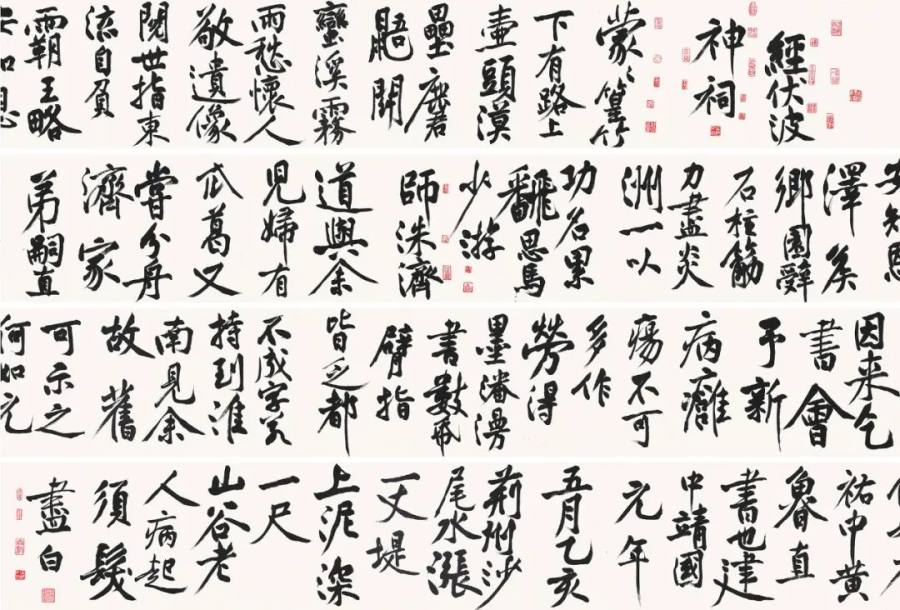 經伏波
神祠
蒙々篁竹
下有路上
壷頭漢
壘麏
鼯鬪
蠻溪霧
雨愁懷人
敬遺像
閱世指東
流自負
霸王略
安知恩
澤侯
鄉園辭
石柱筋
力盡炎
洲一以
功名累
翻思馬
少游
師洙濟
道與余
兒婦有
瓜葛又
嘗分舟
濟家
弟嗣直
因來乞
書會
予新
病癰
瘍不可
多作
勞得
墨瀋漫
書數紙
臂指
皆乏都
不成字若
持到淮
南見余
故舊
可示之
何如元
祐中黃
魯直
書也建
中靖國
元年
五月乙亥
荊州沙
尾水漲
一丈堤
上泥深
一尺
山谷老
人病起
須髮
盡白